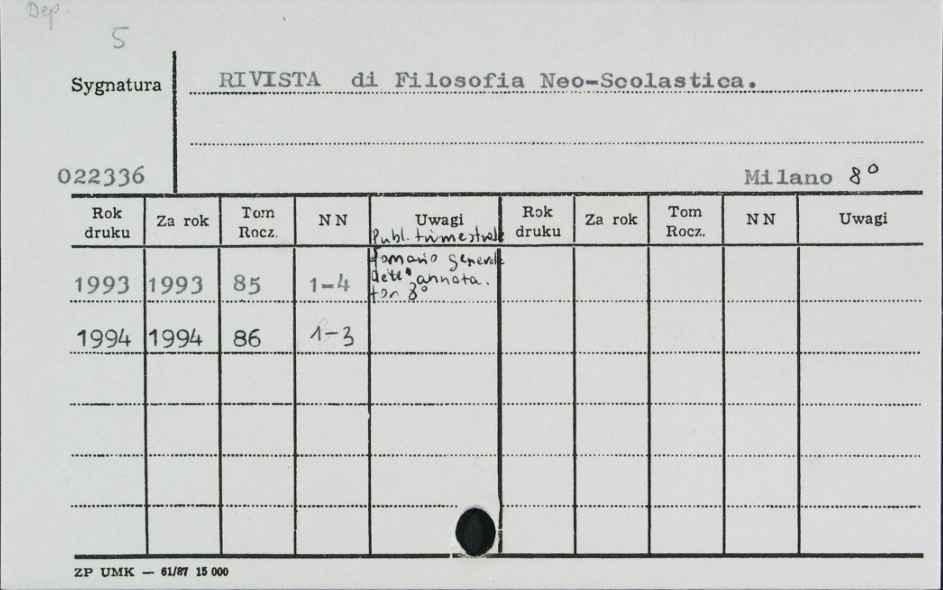 Dep.
5
Sygnatura RIVISTA di Filosofia Neo-Scolastica.
022336 Milano 8°
Rok druku Za rok Tom Rocz. NN Uwagi Rok druku Za rok Tom Rocz. NN Uwagi
Publ. trimestrale
generale
1993 1993 85 1-4 annata.
8°
1994 1994 86 1-3
ZP UMK — 61/87 15 000